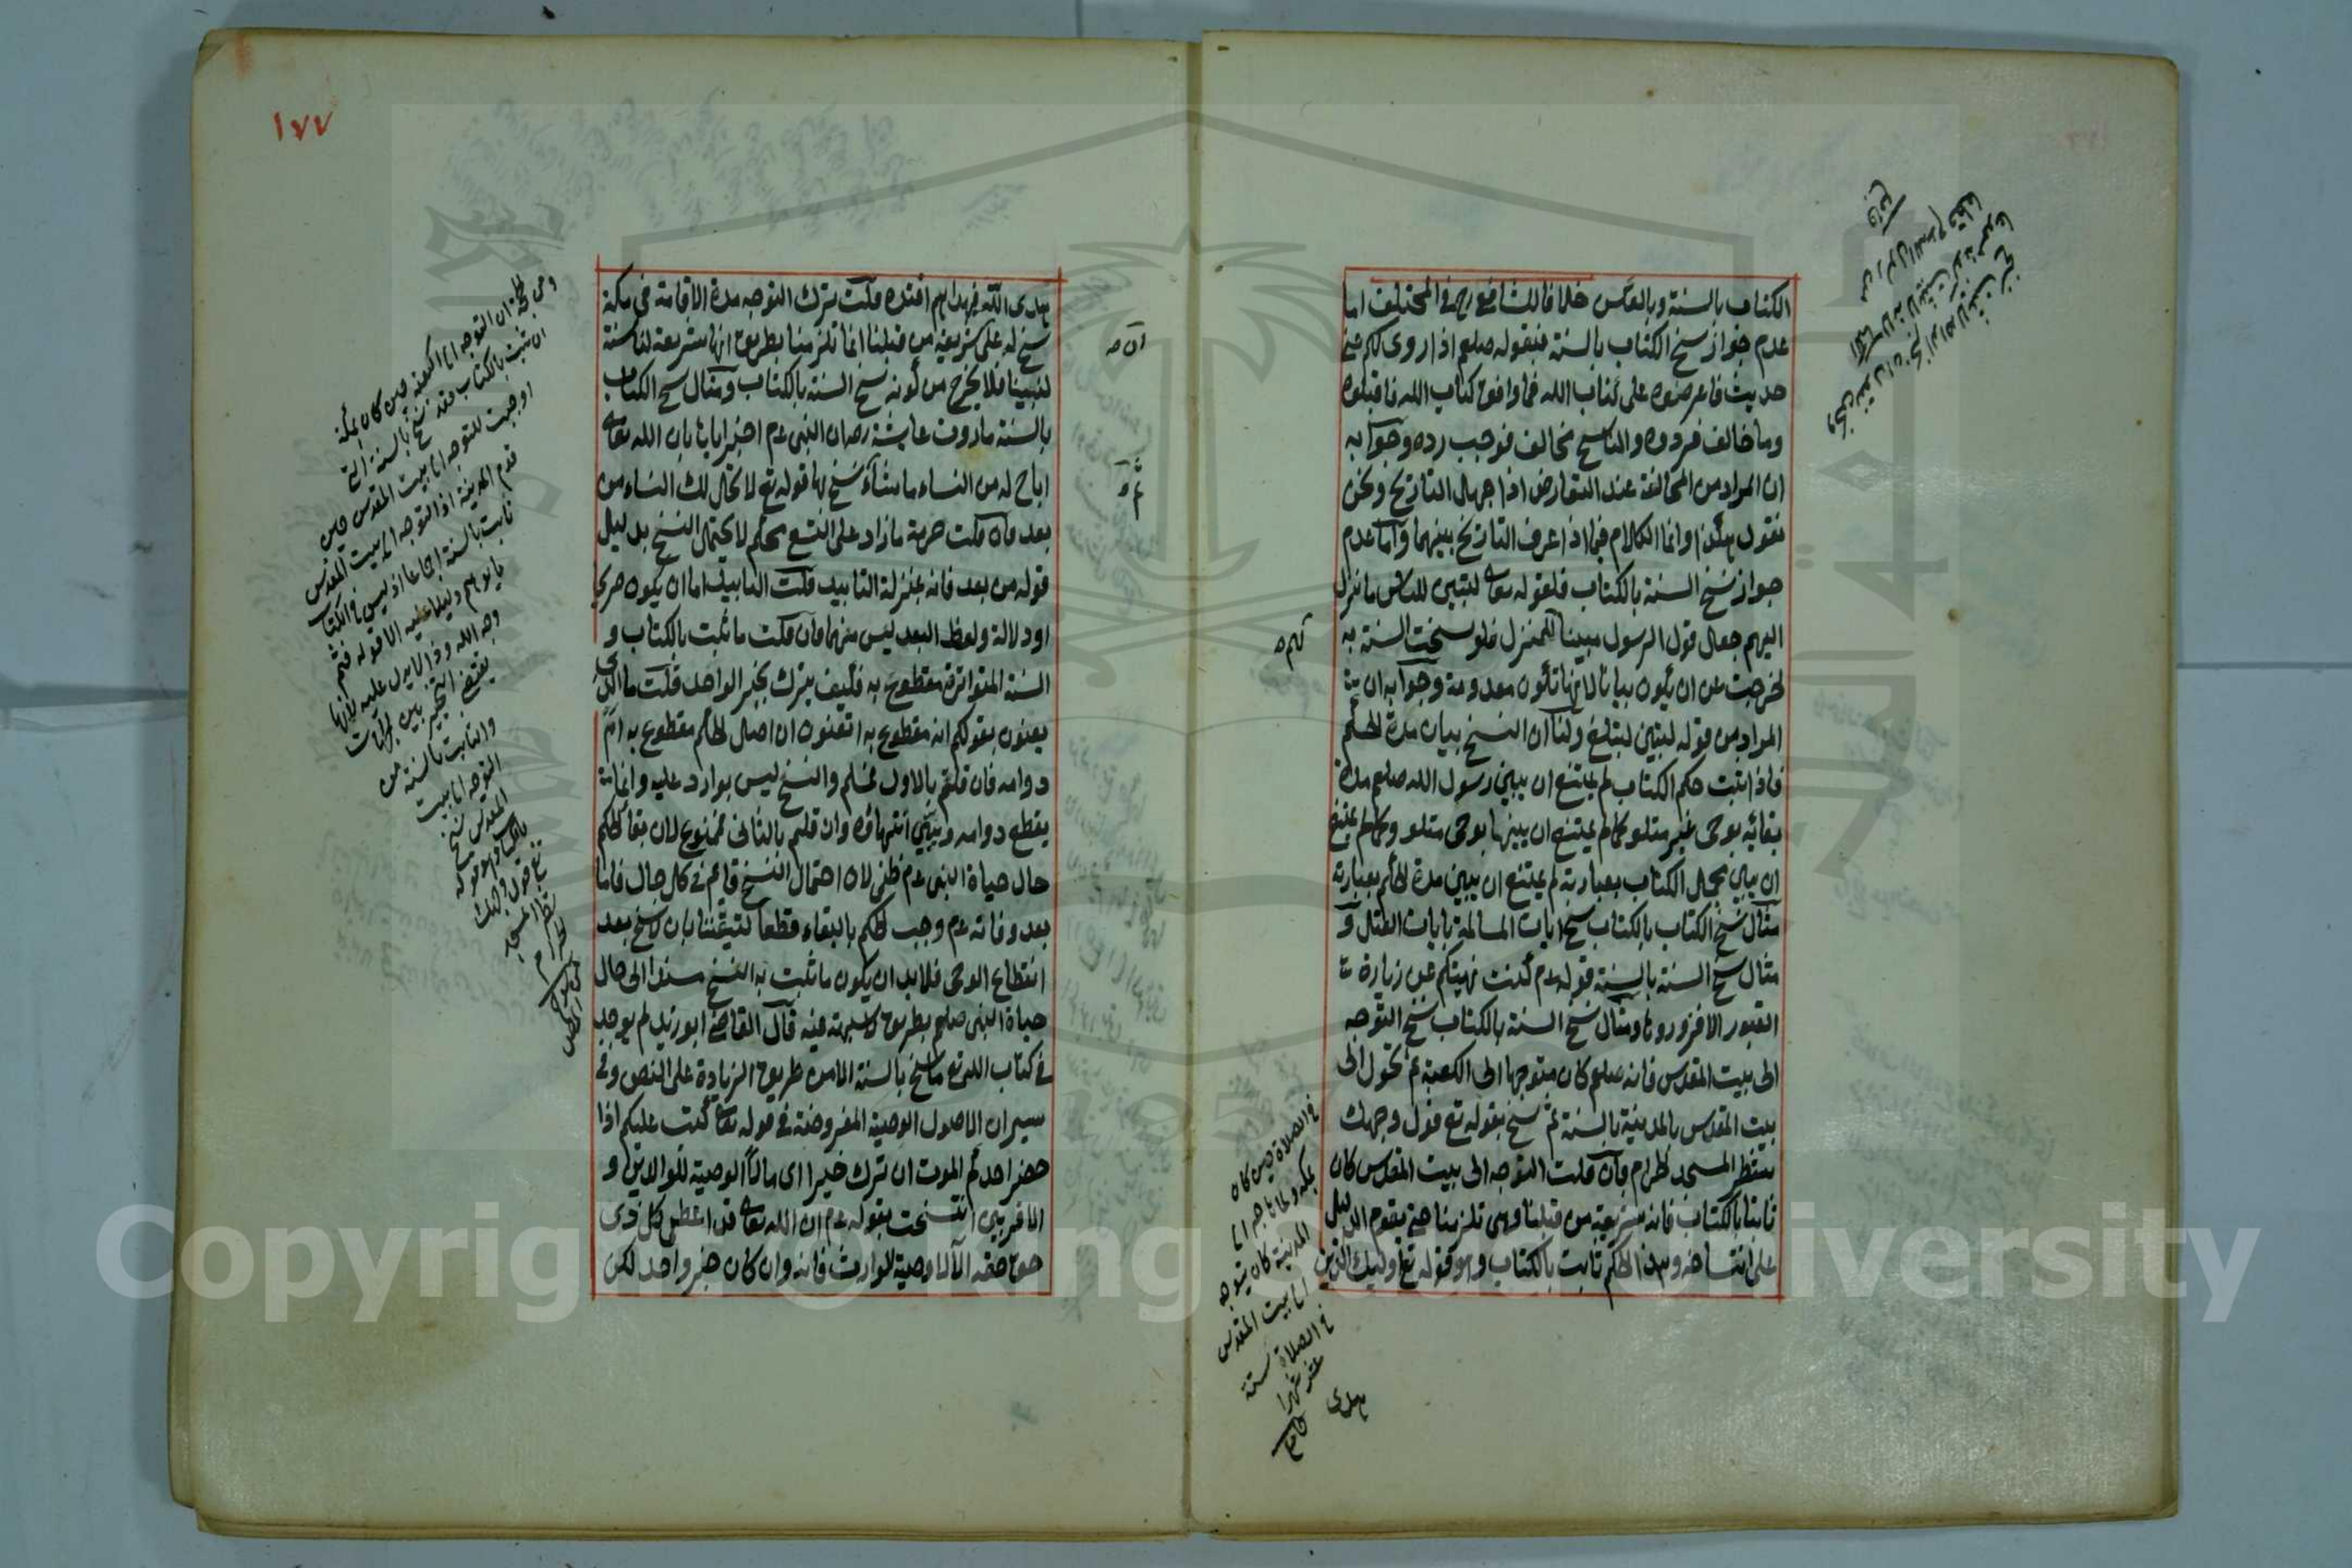 الكتاب بالسنة وبالعكس خلافا للشافعي رحمه في المختلف اما
عدم جواز نسخ الكتاب بالسنة فبقوله صلعم اذا روى لكم عني
حديث فاعرضوه على كتاب الله فما وافق كتاب الله فاقبلوه
وما خالف فردوه والناسخ مخالف فوجب رده وجوابه
ان المراد من المخالفة عند التعارض اذا جهل التاريخ ونحن
نقول هكذا وانما الكلام فيما اذا عرف التاريخ بينهما واما عدم
جواز نسخ السنة بالكتاب فلقوله تعالى لتبين للناس ما نزل
اليهم جعل قول الرسول مبينا للمنزل فلو نسخت السنة به
لخرجت عن ان يكون بيانا لانها تكون معدومة وجوابه ان
المراد من قوله لتبين لتبلغ ولنا ان النسخ بيان مدة الحكم
فاذا ثبت حكم الكتاب لم يمتنع ان يبين رسول الله صلعم مدة
بقائه بوحى غير متلو كما لم يمتنع ان يبينها بوحى متلو وكما لم يمتنع
ان يبين مجمل الكتاب بعبارته لم يمتنع ان يبين مدة الحكم بعبارته
مثال نسخ الكتاب بالكتاب نسخ ايات المسالمة بايات القتال و
مثال نسخ السنة بالسنة قوله عم كنت نهيتكم عن زيارة
القبور الا فزوروها ومثال نسخ السنة بالكتاب نسخ التوجه
الى بيت المقدس فانه صلعم كان متوجها الى الكعبة ثم تحول الى
بيت المقدس بالمدينة بالسنة ثم نسخ بقوله تع فول وجهك
شطر المسجد الحرام فان قلت التوجه الى بيت المقدس كان
ثابتا بالكتاب فانه شريعة من قبلنا وهى تلزمنا حتى يقوم الدليل
على انتساخه وهذا الحكم ثابت بالكتاب وهو قوله تع اولئك الذين
هدى
في الصلاة حين كان
بمكة ولما هاجر الى
المدينة كان يتوجه
الى بيت المقدس
في الصلاة ستة
عشر شهرا
١٧٧
هدى الله فبهداهم اقتده قلت ترك التوجه مدة الاقامة في مكة
نسخ له على شريعة من قبلنا انما تلزمنا بطريق انها شريعة لنا سنة
لنبينا فلا يخرج من كونه نسخ السنة بالكتاب ومثال نسخ الكتاب
بالسنة ما روت عايشة رض ان النبى عم اخبرايانا بان الله تعالى
اباح له من النساء ما شآء نسخ بها قوله تع لا تحل لك النساء من
بعد فان قلت حرمة ما زاد على التسع محكم لا يحتمل النسخ بدليل
قوله من بعد فانه بمنزلة التابيد قلت التابيد اما ان يكون صريحا
او دلالة ولفظ البعد ليس منهما فان قلت ما ثبت بالكتاب و
السنة المتواترة مقطوع به فكيف يترك بخبر الواحد قلت ما الذى
يعنون بقولكم انه مقطوع به اتعنون ان اصل الحكم مقطوع به ام
دوامه فان قلتم بالاول فمسلم والنسخ ليس بوارد عليه وانما
يقطع دوامه ويبين انتهاؤه وان قلتم بالثانى فممنوع لان بقاء الحكم
حال حياة النبى عم ظنى لان احتمال النسخ قايم في كل حال فاما
بعد وفاته عم وجب الحكم بالبقاء قطعا لتيقننا بان لا نسخ بعد
انقطاع الوحى فلا بد ان يكون ما ثبت به النسخ مسندا الى حال
حياة النبى صلعم بطريق لا شبهة فيه قال القاضى ابو زيد لم يوجد
في كتاب الله تع ما نسخ بالسنة الا من طريق الزيادة على النص وفي
سير ان الاصول الوصية المفروضة في قوله تعالى كتب عليكم اذا
حضر احدكم الموت ان ترك خيرا اى مالا الوصية للوالدين و
الاقربين انتسخت بقوله عم ان الله تعالى قد اعطى كل ذى
حق حقه الا لا وصية لوارث فانه وان كان خبر واحد لكن
ان التوجه الى الكعبة حين كان بمكة
ان ثبت بالكتاب فقد نسخ بالسنة التى
اوجبت للتوجه الى بيت المقدس حين
قدم المدينة اذ التوجه الى بيت المقدس
ثابت بالسنة اجماعا اذ ليس في الكتاب
ما يوهم دليلا عليه الا قوله فثم
وجه الله وذا لا يدل عليه لانها
يقتضى التخيير بين الجهات
والثابت بالسنة من
التوجه الى بيت
المقدس نسخ
بالكتاب وهو قوله
تعالى فول وجهك
شطر المسجد
الحرام